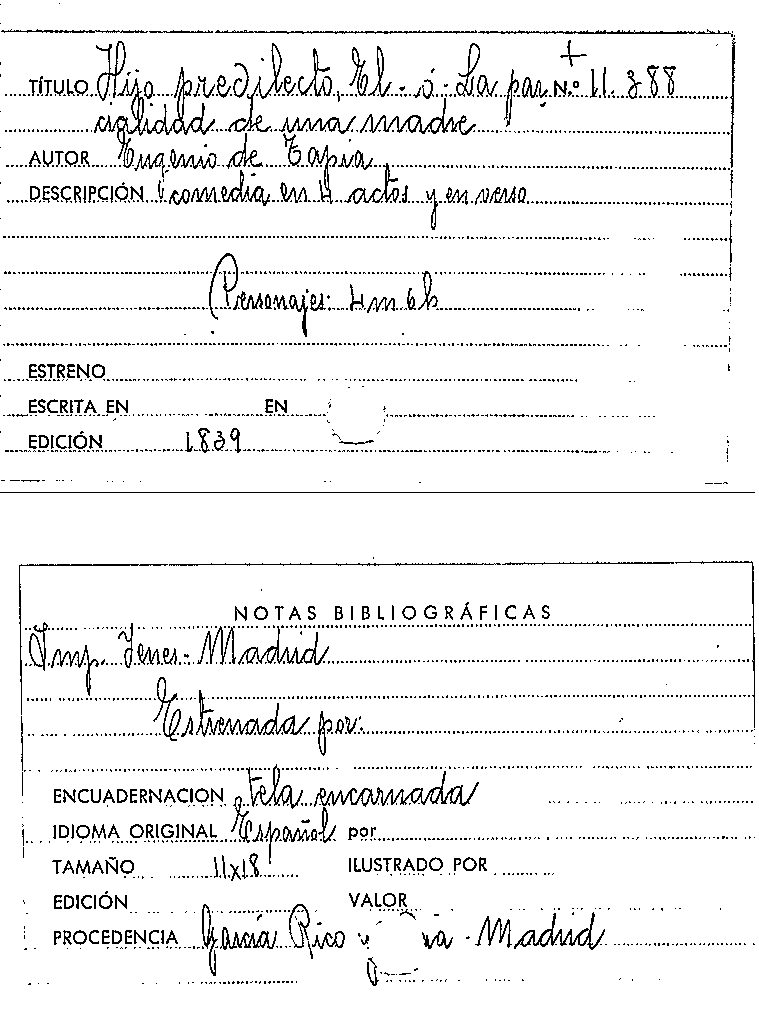 TÍTULO Hijo predilecto, El - ó - La par N.º 11.388
cialidad de una madre
AUTOR Eugenio de Tapia
DESCRIPCIÓN comedia en 4 actos y en verso
Personajes: 4m 6h
ESTRENO
ESCRITA EN EN
EDICIÓN 1839
NOTAS BIBLIOGRÁFICAS
Imp. Yenes - Madrid
Estrenada por:
ENCUADERNACION tela encarnada
IDIOMA ORIGINAL Español por
TAMAÑO 11x18 ILUSTRADO POR
EDICIÓN VALOR
PROCEDENCIA García Rico y - Madrid